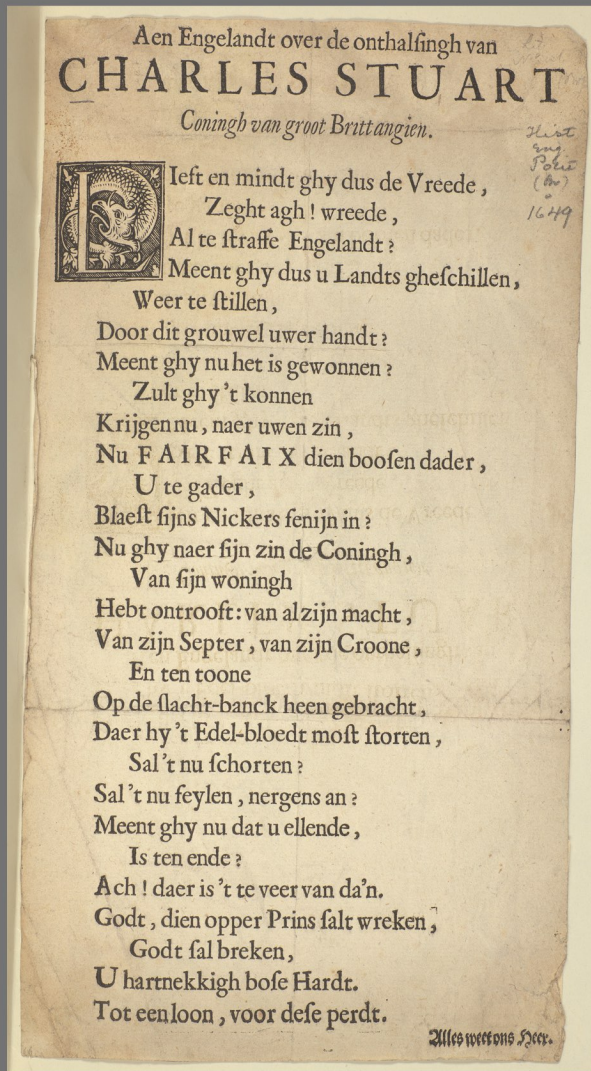 Aen Engelandt over de onthalſingh van
CHARLES STUART
Coningh van groot Brittangien.
Hist
Eng
Poli
(Br)
1649
LIeft en mindt ghy dus de Vreede,
Zeght agh! wreede,
Al te ſtraffe Engelandt?
Meent ghy dus u Landts gheſchillen,
Weer te ſtillen,
Door dit grouwel uwer handt?
Meent ghy nu het is gewonnen?
Zult ghy 't konnen
Krijgen nu, naer uwen zin,
Nu FAIRFAIX dien booſen dader,
U te gader,
Blaeſt ſijns Nickers fenijn in?
Nu ghy naer ſijn zin de Coningh,
Van ſijn woningh
Hebt ontrooft: van al zijn macht,
Van zijn Septer, van zijn Croone,
En ten toone
Op de ſlacht-banck heen gebracht,
Daer hy 't Edel-bloedt moſt ſtorten,
Sal 't nu ſchorten?
Sal 't nu feylen, nergens an?
Meent ghy nu dat u ellende,
Is ten ende?
Ach! daer is 't te veer van da'n.
Godt, dien opper Prins ſalt wreken,
Godt ſal breken,
U hartnekkigh boſe Hardt.
Tot een loon, voor deſe perdt.
Alles weet ons Heer.